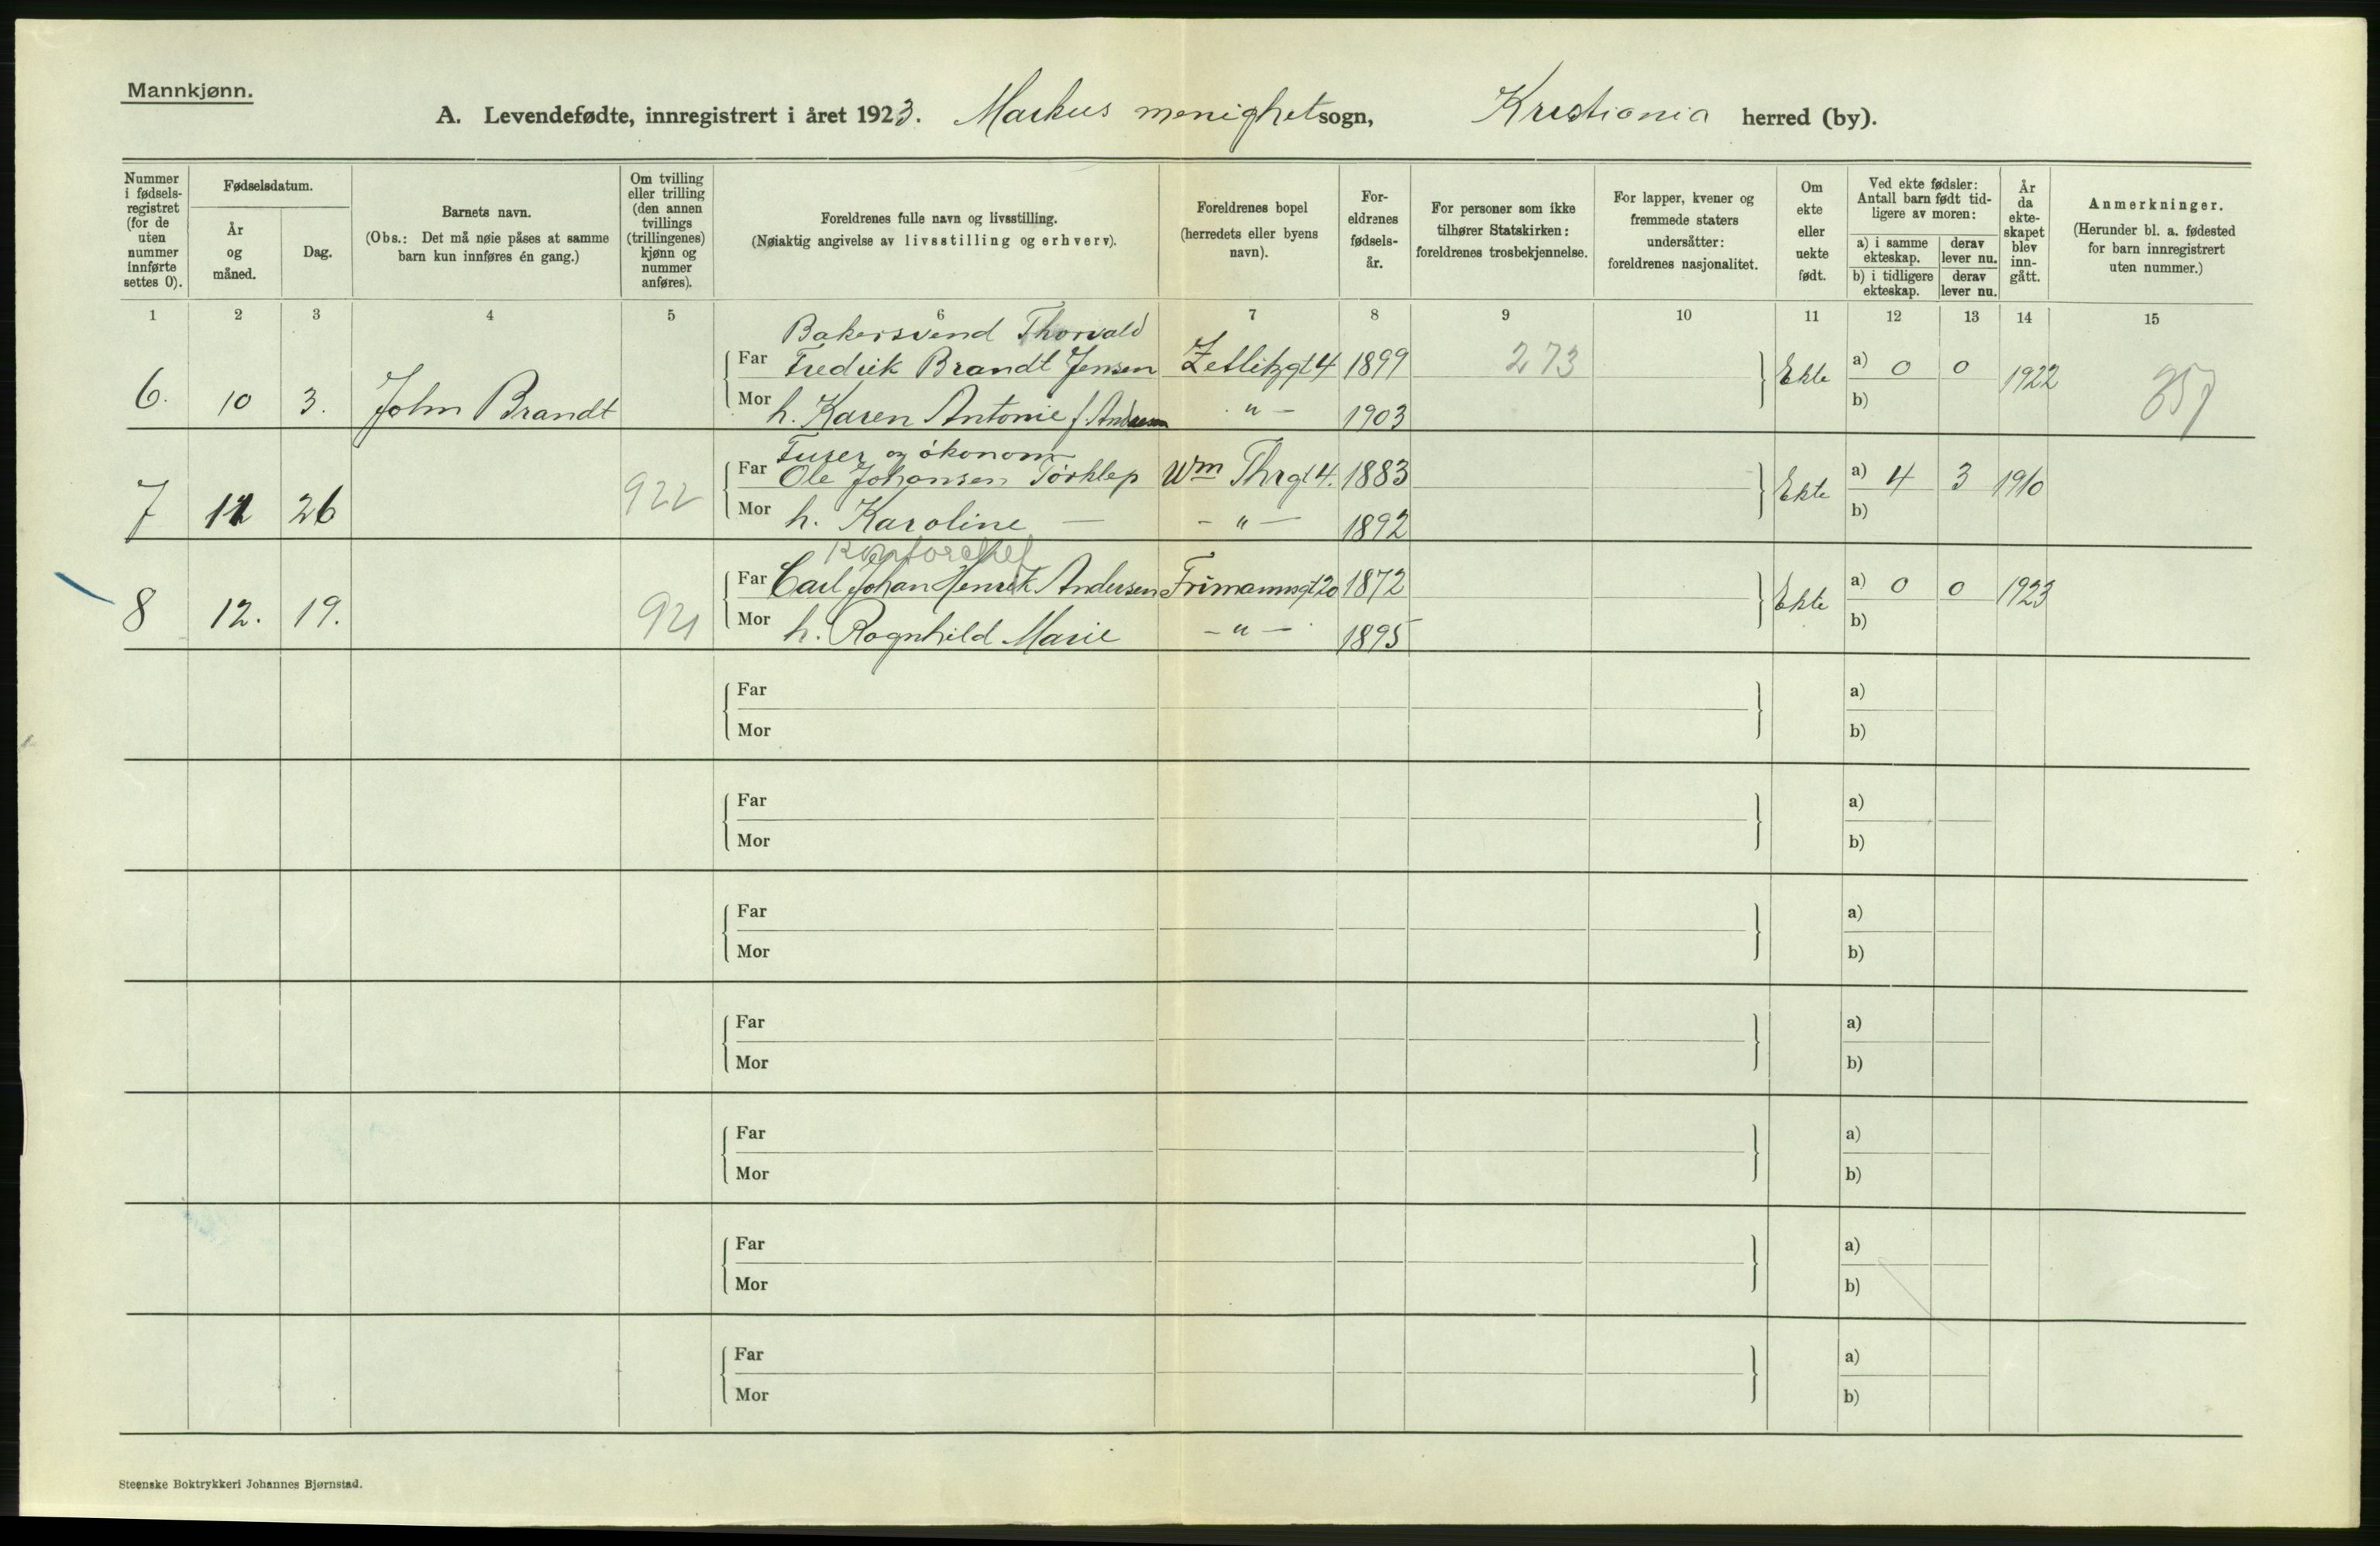 Mannkjønn.
A. Levendefødte, innregistrert i året 1923. Markus menighetsogn, Kristiania herred (by).
Nummer i fødsels-registret (for de uten nummer innførte settes 0).
Fødselsdatum.
År og måned.
Dag.
Barnets navn.
(Obs.: Det må nøie påses at samme barn kun innføres én gang.)
Om tvilling eller trilling (den annen tvillings (trillingenes) kjønn og nummer anføres).
Foreldrenes fulle navn og livsstilling.
(Nøiaktig angivelse av livsstilling og erhverv).
Foreldrenes bopel (herredets eller byens navn).
For-eldrenes fødsels-år.
For personer som ikke tilhører Statskirken: foreldrenes trosbekjennelse.
For lapper, kvener og fremmede staters undersåtter: foreldrenes nasjonalitet.
Om ekte eller uekte født.
Ved ekte fødsler: Antall barn født tid-ligere av moren:
a) i samme ekteskap.
derav lever nu.
b) i tidligere ekteskap.
derav lever nu.
År da ekte-skapet blev inn-gått.
Anmerkninger.
(Herunder bl. a. fødested for barn innregistrert uten nummer.)
1 2 3 4 5 6 7 8 9 10 11 12 13 14 15
Bakersvend Thorvald
Far Fredrik Brandt Jensen Zetlitzgt 4 1899 273
6. 10 3. John Brandt Ekte a) 0 0 1922
Mor h. Karen Antonie f. Andresen " 1903 b)
og økonom
Far Ole Johansen Tørklep Wm Thrgt 4. 1883
7 11 26 922 Ekte a) 4 3 1910
Mor h. Karoline — - " — 1892 b)
Kontorchef
Far Carl Johan Henrik Andersen Frimannsgt 20 1872
8 12. 19. 921 Ekte a) 0 0 1923
Mor h. Ragnhild Marie - " — 1895 b)
Far a)
Mor b)
Far a)
Mor b)
Far a)
Mor b)
Far a)
Mor b)
Far a)
Mor b)
Far a)
Mor b)
Far a)
Mor b)
Steenske Boktrykkeri Johannes Bjørnstad.